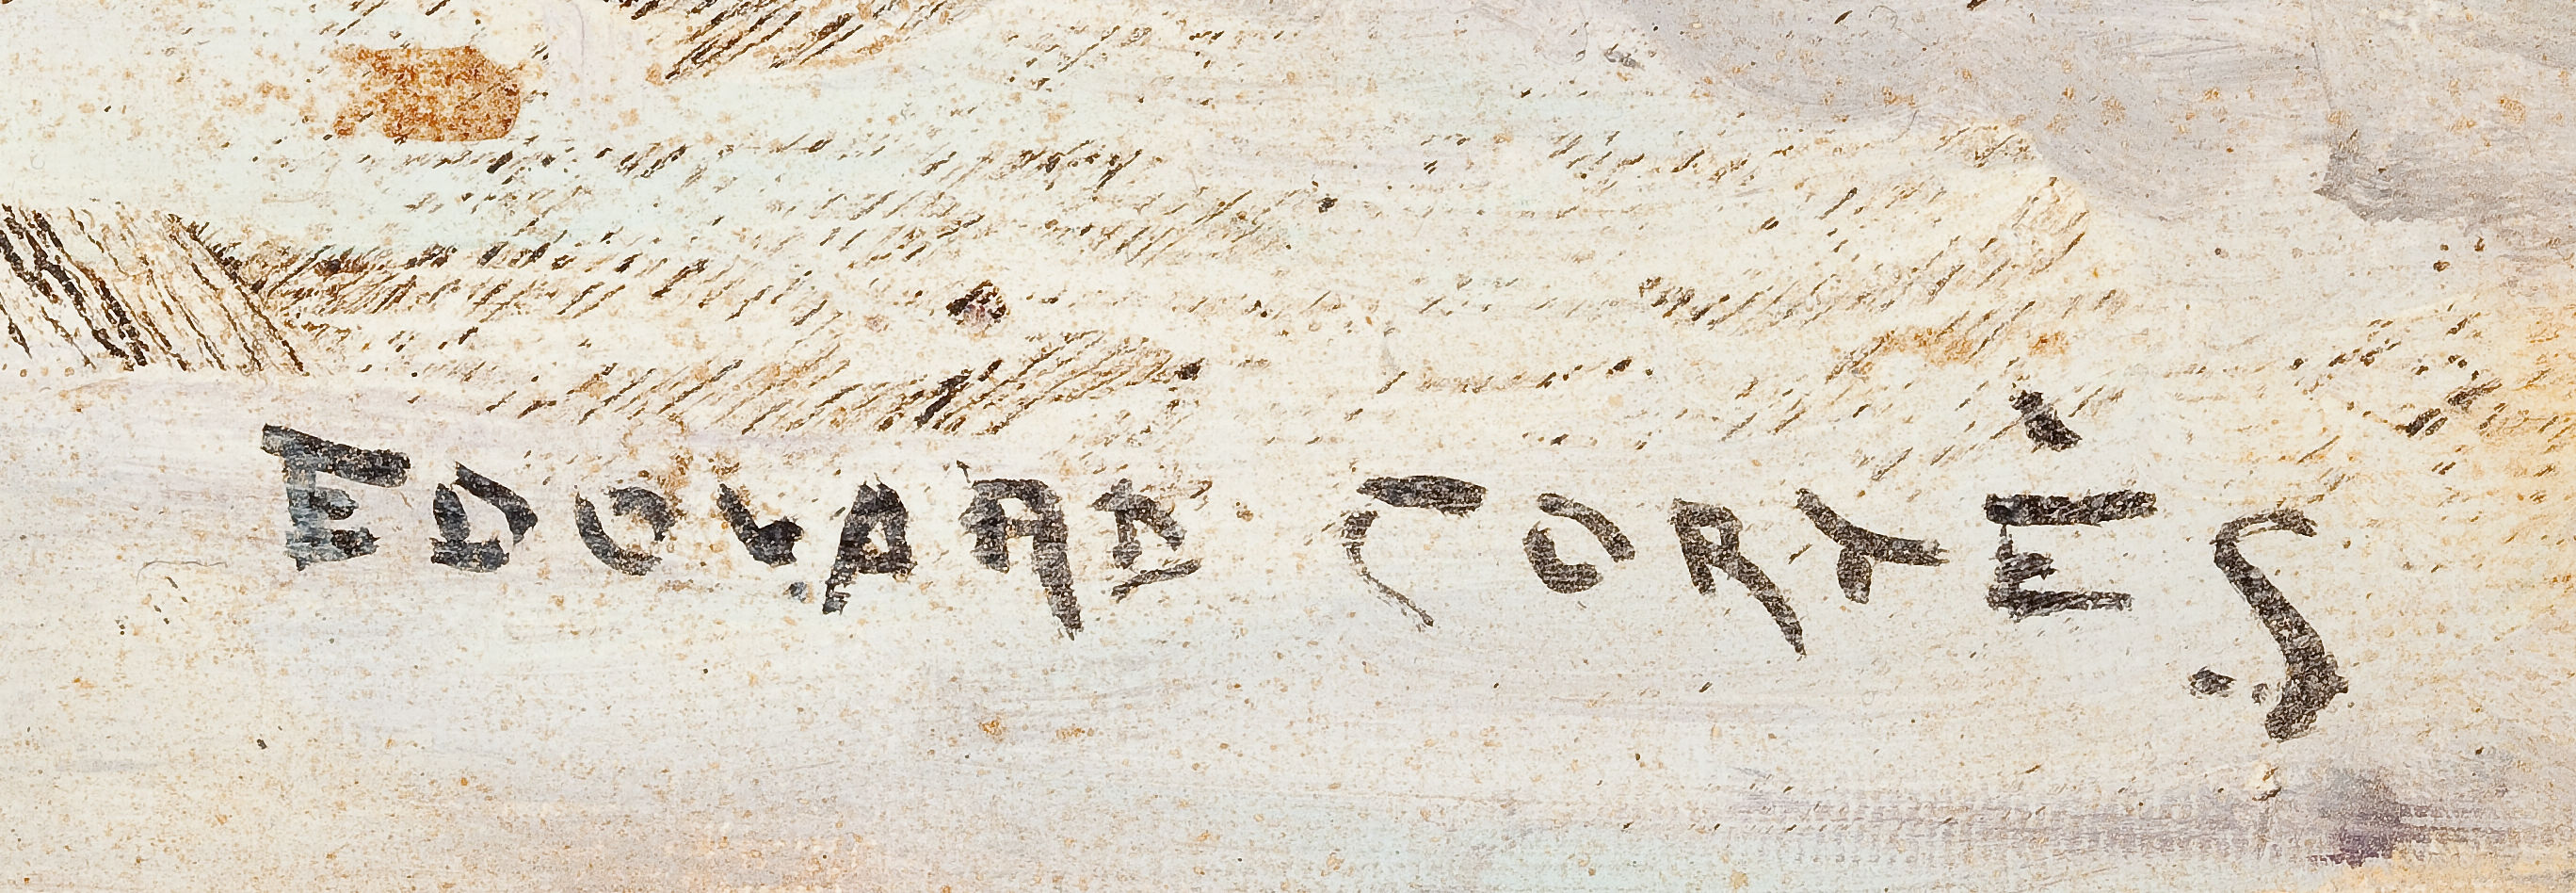 EDOUARD CORTÈS